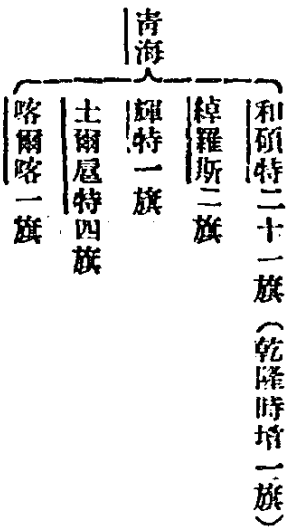 青海
和碩特二十一旗（乾隆時增一旗）
綽羅斯二旗
輝特一旗
土爾扈特四旗
喀爾喀一旗